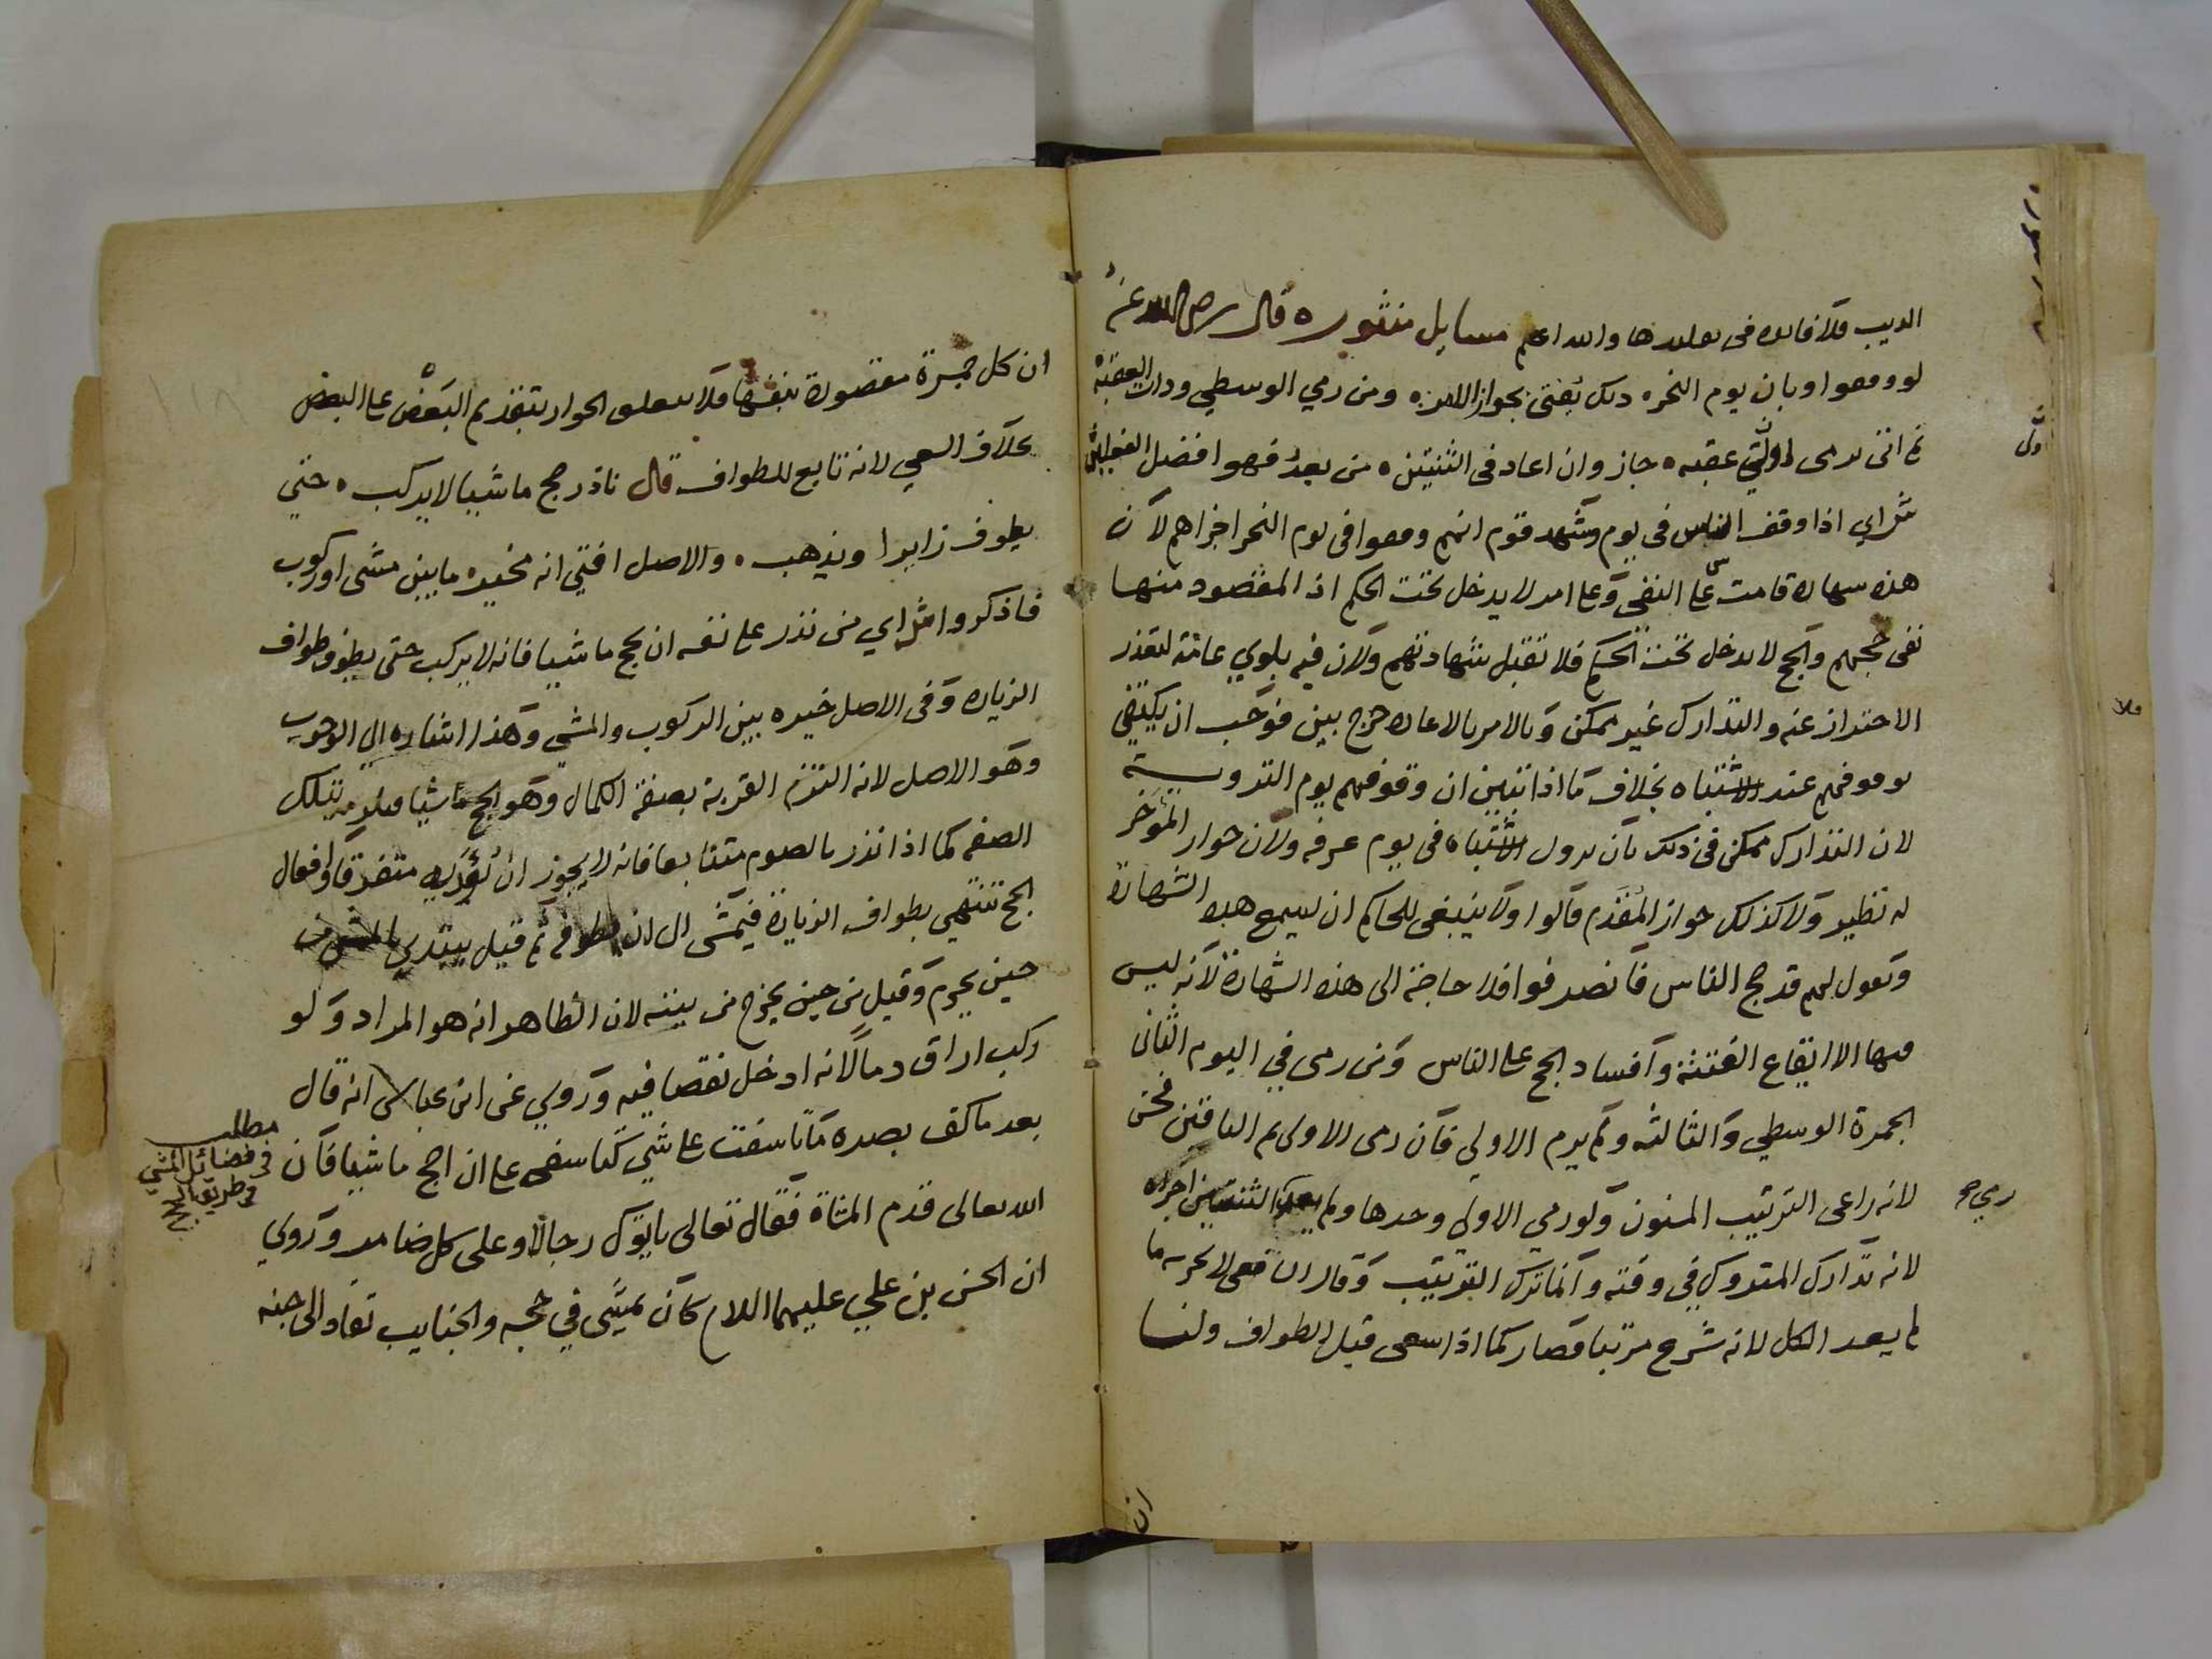 فلا فايده في والله اعلم مسايل منثوره قال رضي الله عنه
لو وقفوا وبان يوم النحر ذلك يفتى بجواز الامر ومن رمي الوسطي وذات العقبة
ثم اتى عقبه جاز وان اعاد في الثنتين من بعد فهو افضل
ش اي اذا وقف الناس في يوم وشهد قوم انهم وقفوا في يوم النحر اجزاهم لان
هذه شهادة قامت على النفي وعلى امر لا يدخل تحت الحكم اذ المقصود منها
نفي حجهم والحج لا يدخل تحت الحكم فلا تقبل شهادتهم ولان فيه بلوي عامة لتعذر
الاحتراز عنه والتدارك غير ممكن وبالامر بالاعادة حرج بين فوجب ان يكتفي
بوقوفهم عند الاشتباه بخلاف ما اذا تبين ان وقوفهم يوم التروية
لان التدارك ممكن في ذلك بان يزول الاشتباه في يوم عرفه ولان جواز المؤخر
له نظير ولا كذلك جواز المقدم قالوا ولا ينبغي للحاكم ان يسمع هذه الشهادة
ويقول لهم قد حج الناس فانصرفوا فلا حاجة الى هذه الشهادة لانه ليس
فيها الا ايقاع الفتنة وافساد الحج على الناس ومن رمى في اليوم الثاني
الجمرة الوسطي والثالثه ولم يرم الاولي فان رمى الاولى ثم الباقتين فحسن
لانه راعى الترتيب المسنون ولو رمي الاولي وحدها ولم يعد الثنتين اجزاه
لانه تدارك المتروك في وقته وانما ترك الترتيب وقال الشافعى لا يجزيه ما
لم يعد الكل لانه شرع مرتبا فصار كما اذا سعى قبل الطواف ولنا
رمي صح
ان
ان كل جمرة مقصودة بنفسها فلا يتعلق الجواز بتقديم البعض على البعض
بخلاف السعي لانه تابع للطواف قال ناذر حج ماشيا لا يركب حتي
يطوف زايرا ويذهب والاصل افتي انه مخيره ما بين مشى او ركوب
فاذكروا ش اي من نذر على نفسه ان يحج ماشيا فانه لا يركب حتى يطوف طواف
الزياره وفي الاصل خيره بين الركوب والمشي وهذا اشاره الي الوجوب
وهو الاصل لانه التزم القربة بصفة الكمال وهو الحج ماشيا فيلزمه بتلك
الصفه كما اذا نذر بالصوم متتابعا فانه لا يجوز ان يؤديه متفرقا وافعال
الحج تنتهي بطواف الزيارة فيمشى الى ان يطوفه ثم قيل يبتدي المشي من
حين يحرم وقيل من حين يخرج من بيته لان الظاهر انه هو المراد ولو
ركب اراق دما لانه ادخل نقصا فيه وروي عن ابن عباس انه قال
بعد ما كف بصره ما تاسفت على شي كتاسفى على ان احج ماشيا فان
الله تعالى قدم المشاة فقال تعالى ياتوك رجالا وعلى كل ضامر وروي
ان الحسن بن علي عليهما السلام كان يمشى في حجه والجنايب تقاد الى جنبه
مطلب
في فضائل المشي
في طريق الحج